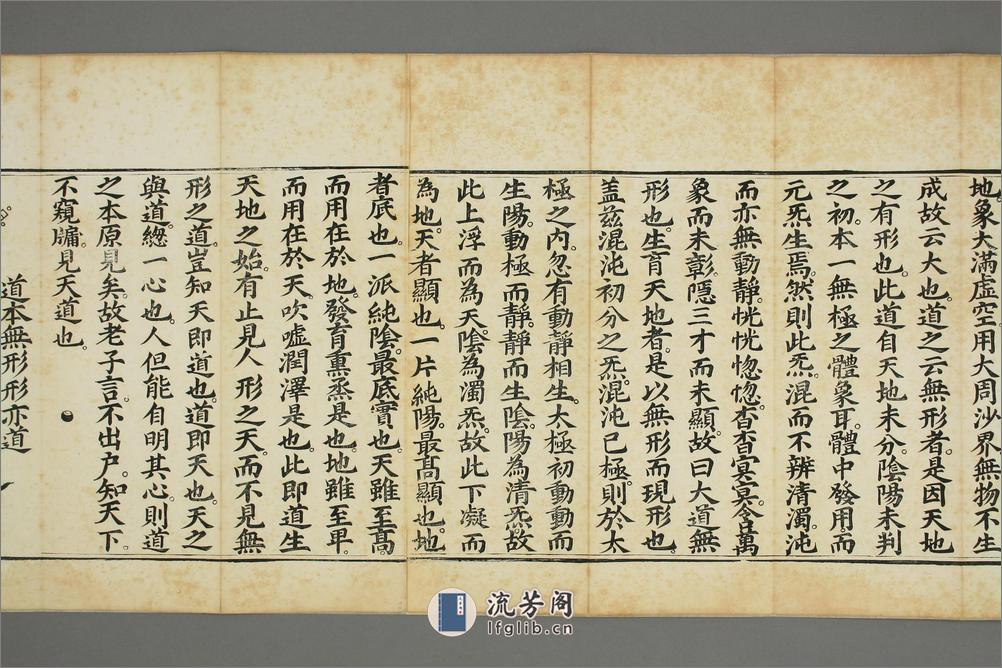 地象大滿虛空用大周沙界無物不生
成故云大也。道之云無形者。是因天地
之有形也。此道自天地未分。陰陽未判
之初。本一無極之體象耳。體中發用而
元炁生焉。然則此炁。混而不辨清濁。沌
而亦無動靜。恍恍惚惚。杳杳冥冥。含萬
象而未彰。隱三才而未顯。故曰大道無
形也。生育天地者。是以無形而現形也。
盖玆混沌初分之炁。混沌已極。則於太
極之內。忽有動靜相生。太極初動。動而
生陽。動極而靜。靜而生陰。陽為清炁。故
此上浮而為天。陰為濁炁。故此下凝而
為地。天者顯也。一片純陽。最髙顯也。地
者底也。一派純陰。最底實也。天雖至髙。
而用在於地。發育熏烝是也。地雖至卑。
而用在於天。吹噓潤澤是也。此即道生
天地之始。有止見人形之天。而不見無
形之道。豈知天即道也。道即天也。天之
與道。緫一心也。人但能自明其心。則道
之本原見矣。故老子言。不出户。知天下。
不窺牖。見天道也。
道本無形形亦道
流芳阁
lfglib.cn